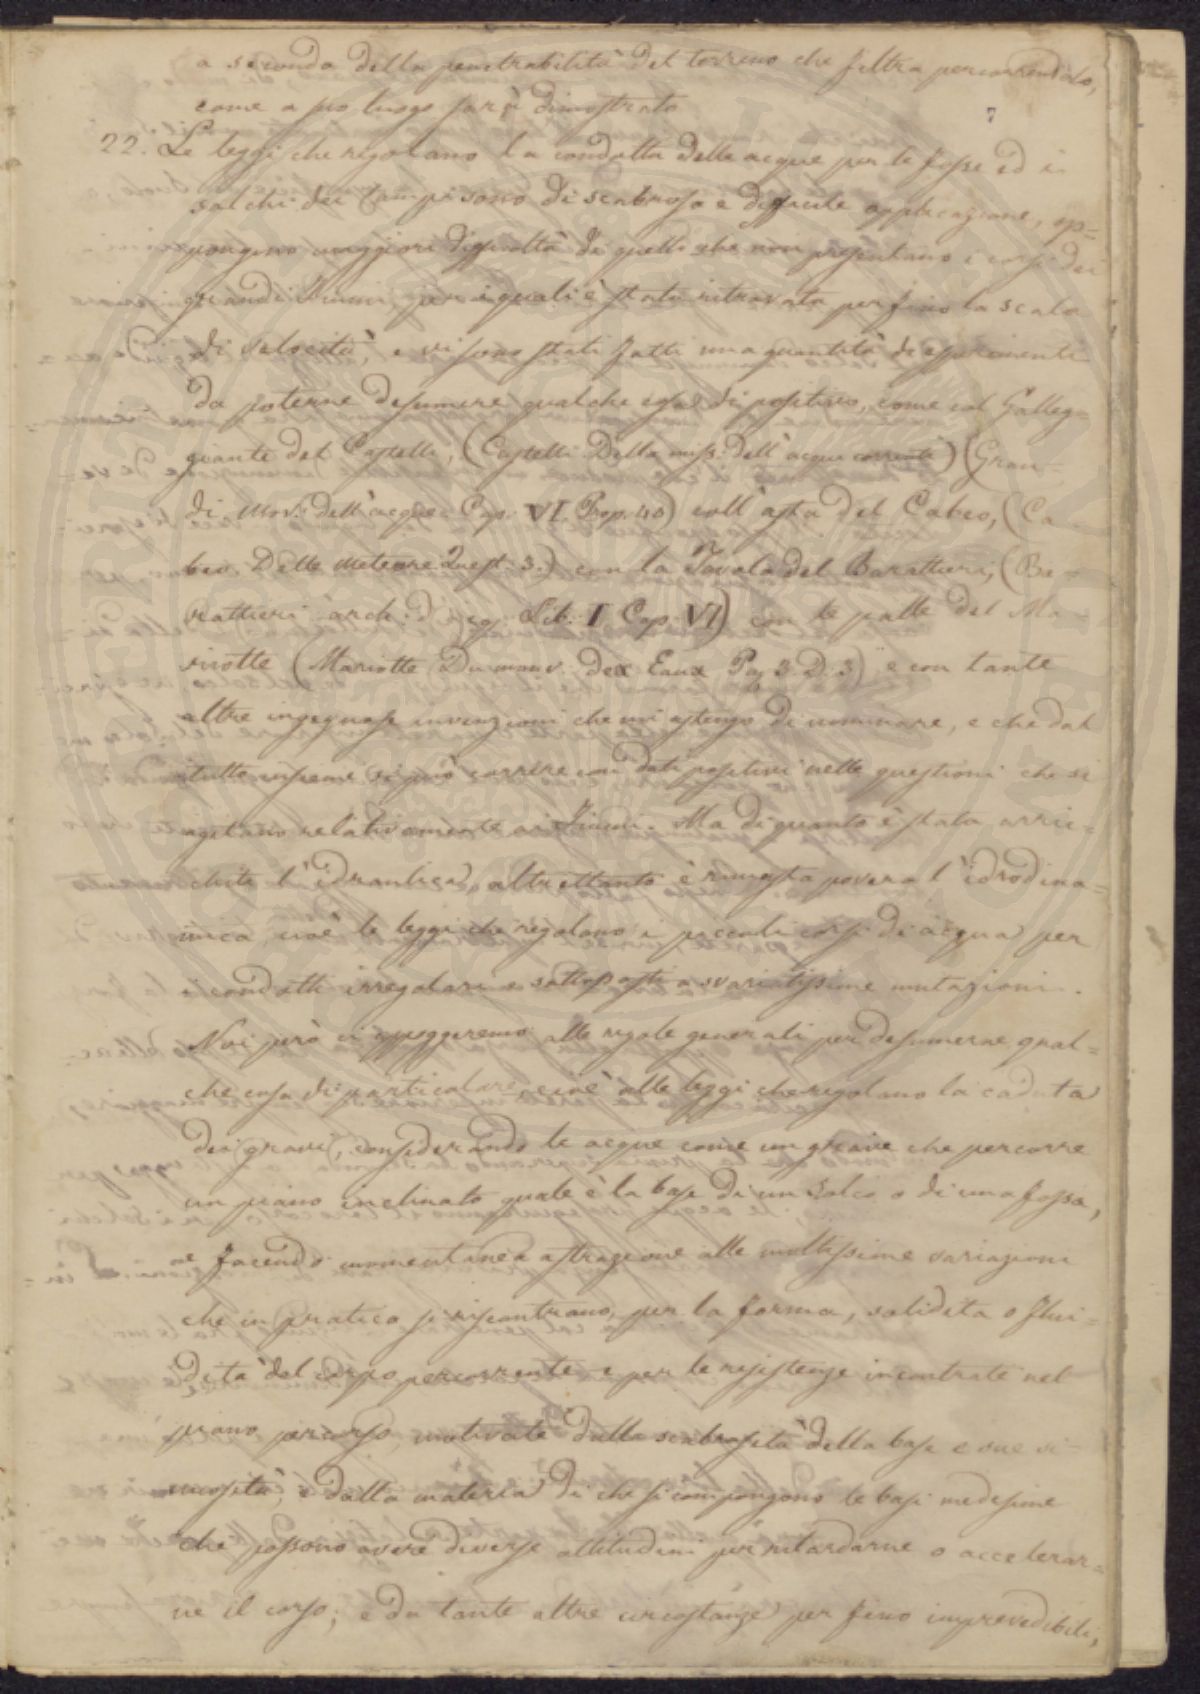 a seconda della penetrabilità del terreno che filtra percorrendolo,
come a suo luogo sarà dimostrato
7
22. Le leggi che regolano la condotta delle acque per le fosse ed i
solchi dei Campi sono di scabrosa e difficile applicazione, op=
pongono maggiori difficoltà di quelli che non presentano i corsi dei
grandi Fiumi, per i quali è stata ritrovata per fino la scala
di velocità, e vi sono stati fatti una quantità di esperimenti
da poterne desumere qualche cosa di positivo, come col Galleg=
giante del Castelli, (Castelli Della mis: dell' acque correnti) (Gran=
di Mov: dell' acque Cap. VI. Prop. 40) coll' asta del Cabeo, (Ca
beo. Delle Meteore Quest. 3.) con la Tavola del Barattieri, (Ba=
rattieri arch: d'acq. Lib. I Cap. VI) con le palle del Ma=
riotte (Mariotte Du mouv. des Eaux Pag 3. D. 3) e con tante
altre ingegnose invenzioni che mi astengo di nominare, e che dal
tutto insieme si può correre con dati positivi nelle questioni che si
agitano relativamente ai Fiumi. Ma di quanto è stata arric=
chita l'idraulica, altrettanto è rimasta povera l'idrodina=
mica, cioè le leggi che regolano i piccoli corsi di acqua per
i condotti irregolari e sottoposti a svariatissime mutazioni.
Noi però ci appoggeremo alle regole generali per desumerne qual=
che cosa di particolare, cioè alle leggi che regolano la caduta
dei gravi, considerando le acque come un grave che percorre
un piano inclinato quale è la base di un Solco o di una fossa,
e facendo momentanea astrazione alle moltissime variazioni
che in pratica si riscontrano, per la forma, solidità o flui=
dità del corpo percorrente e per le resistenze incontrate nel
piano percorso, motivate dalla scabrosità della base e sue si=
nuosità, e dalla materia di che si compongono le basi medesime
che possono avere diverse attitudini per ritardarne o accelerar=
ne il corso; e da tante altre circostanze per fino imprevedibili,